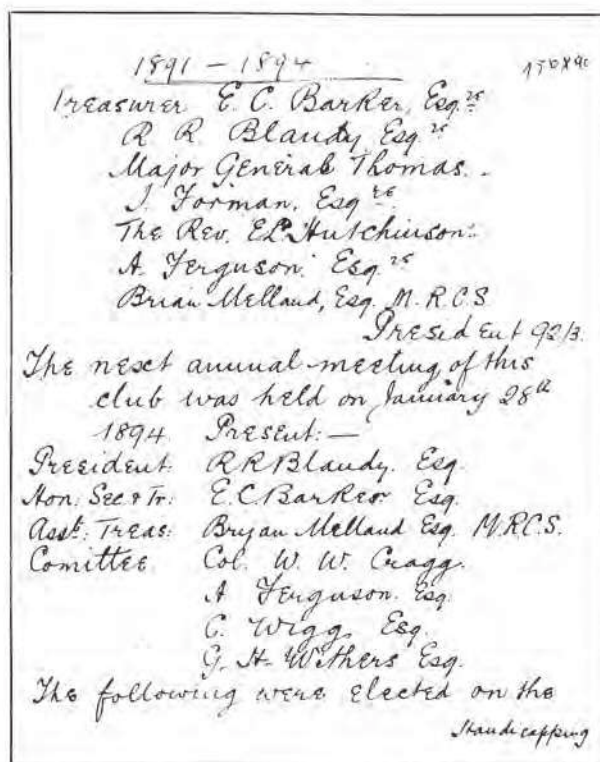 1891 – 1894
Treasurer E. C. Barker, Esq.re
R. R. Blaudy Esq.re
Major General Thomas.
J. Forman, Esq.re
The Rev. E.P. Hutchinson
A. Ferguson. Esq.re
Brian Melland, Esq. M.R.C.S
President 92/3.
The next annual meeting of this
club was held on January 28th
1894. Present:—
President: R R Blaudy. Esq.
Hon: Sec & Tr: E. C. Barker Esq.
Asst: Treas: Bryan Melland Esq. M.R.C.S.
Comittee Col. W. W. Cragg.
A Ferguson. Esq.
C. Wigg, Esq.
G. H. Withers Esq.
The following were elected on the
Handicapping